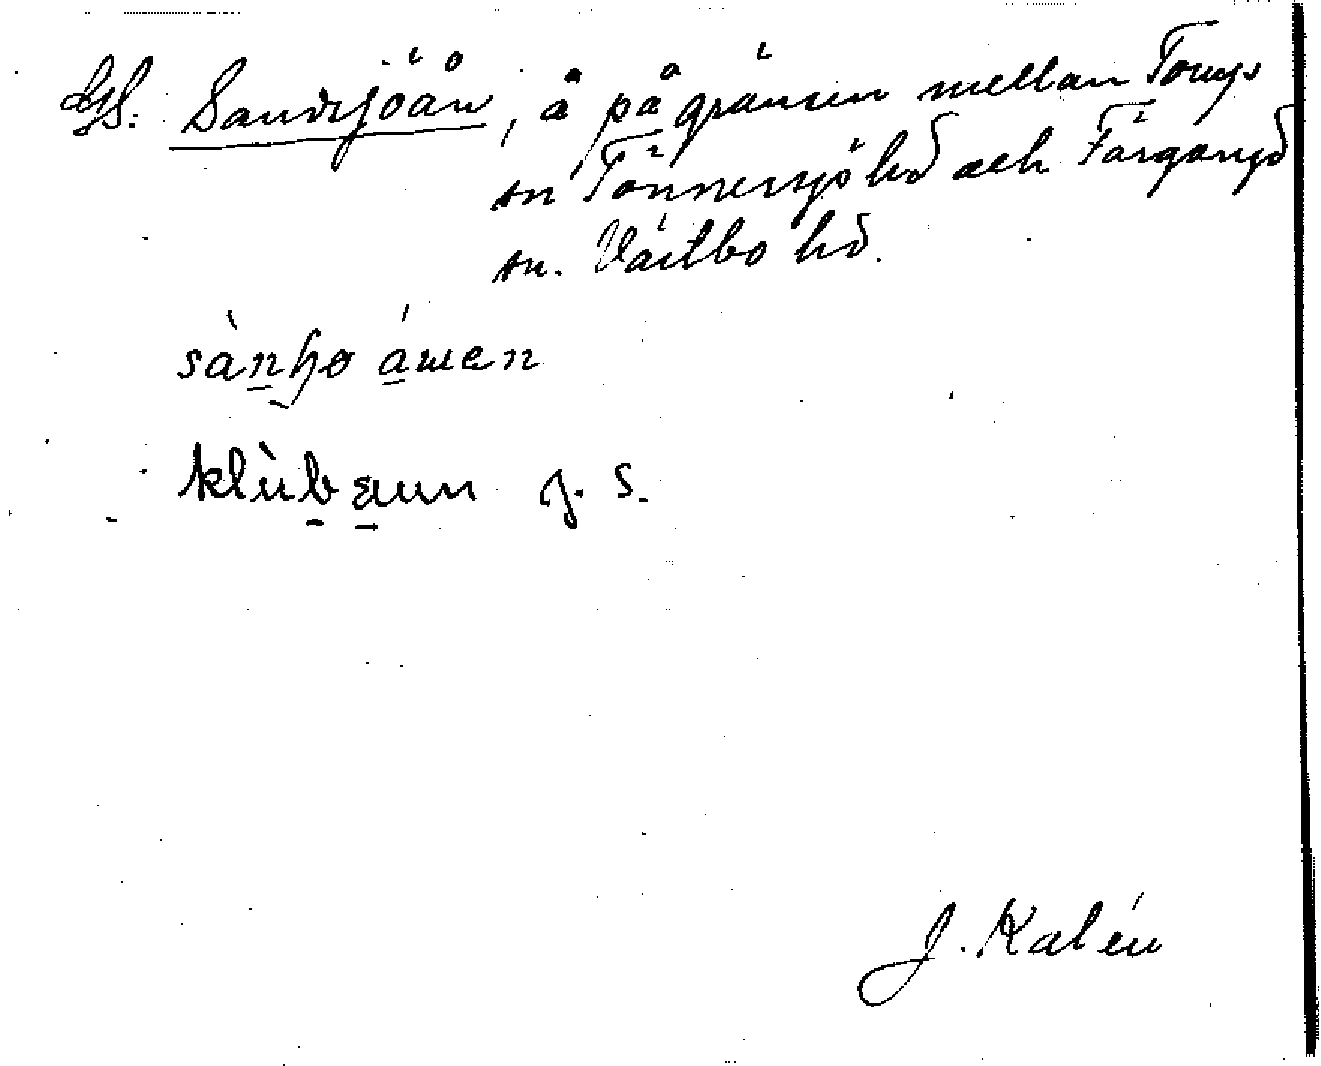 GS: Sandsjöån, å på gränsen mellan Torups
sn Tönnersjö hd och Färgaryd
sn. Västbo hd.
sànʃjø åwen
klùbaun g. s.
J. Kalén